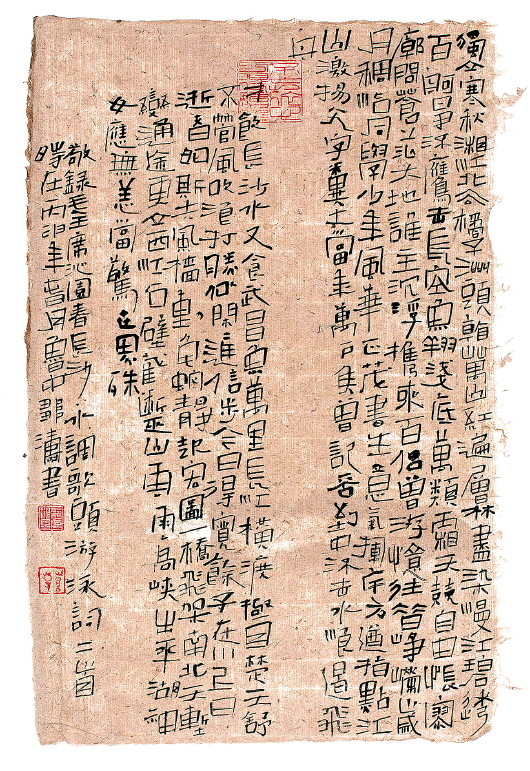 獨立寒秋湘江北去橘子洲頭看萬山紅遍層林盡染漫江碧透
百舸爭流鷹擊長空魚翔淺底萬類霜天競自由悵寥
廓問蒼茫大地誰主沉浮攜來百侶曾游憶往昔崢嶸歲
月稠恰同學少年風華正茂書生意氣揮斥方遒指點江
山激揚文字糞土當年萬戶侯曾記否到中流擊水浪遏飛
舟
才飲長沙水又食武昌魚萬里長江橫渡極目楚天舒
不管風吹浪打勝似閑庭信步今日得寬餘子在川上曰
逝者如斯夫風檣動龜蛇靜起宏圖一橋飛架南北天塹
變通途更立西江石壁截斷巫山雲雨高峽出平湖神
女應無恙當驚世界殊
敬錄毛主席沁園春長沙水調歌頭游泳詞二首
時在丙申年春月魯中鄒濤書